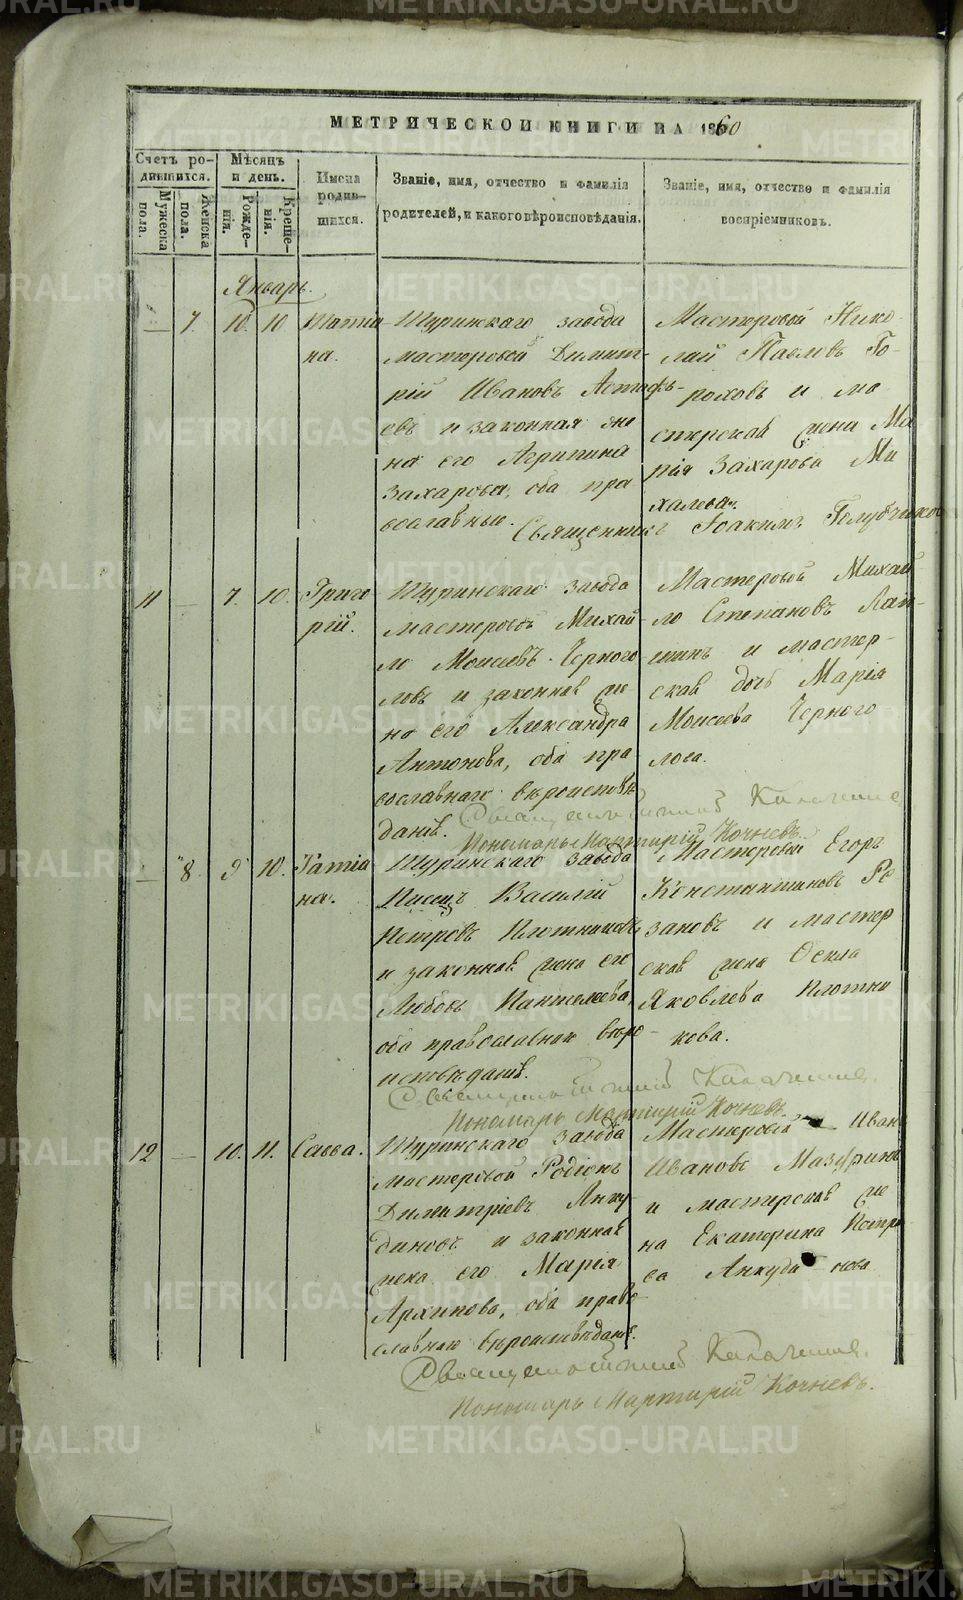 МЕТРИЧЕСКОЙ КНИГИ НА 1860
Счетъ родившихся.
Мужеска пола.
Женска пола.
Мѣсяцъ и день.
Рожденія.
Крещенія.
Имена родившихся.
Званіе, имя, отчество и фамилія родителей, и какого вѣроисповѣданія.
Званіе, имя, отчество и фамилія воспріемниковъ.
Январь.
7 10. 10
на.
Туринскаго завода
мастеровой Димит-
рій Ивановъ
евъ и законная же
на его Агрипина
Захарова, оба пра
вославные.
Мастеровой Нико-
лай Павловъ Го-
роховъ и ма
стерская жена Ма
рія Захарова Ми
халева.
Священникъ Іоакимъ Голубчиковъ
11 — 7. 10. Григо
рій.
Туринскаго завода
мастеровой Михай-
ло Моисеевъ Черного
ловъ и законная же
на его Александра
Антонова, оба пра
вославнаго вѣроисповѣ
данія.
Мастеровой Михай
ло Степановъ Лап-
шинъ и мастер-
ская дочь Марія
Моисеева Черного
лова.
Пономарь Мартирій Кочневъ.
— 8. 9 10. Татіа
на.
Туринскаго завода
Писецъ Василій
Петровъ Плотниковъ
и законная жена его
Любовь Пантелеева,
оба православнаго вѣро-
исповѣданія.
Мастеровой Егоръ
Константиновъ Ре
зановъ и мастер
ская жена
Яковлева Плотни
кова.
Пономарь Мартирій Кочневъ.
12 — 10. 11. Савва.
Туринскаго завода
мастеровой Родіонъ
Димитріевъ Анку
диновъ и законная
жена его Марія
Архипова, оба право-
славнаго вѣроисповѣданія.
Мастеровой Иванъ
Ивановъ Мазуринъ
и мастерская же
на Екатерина Петро
ва Анкудинова
Пономарь Мартирій Кочневъ.
METRIKI.GASO-URAL.RU